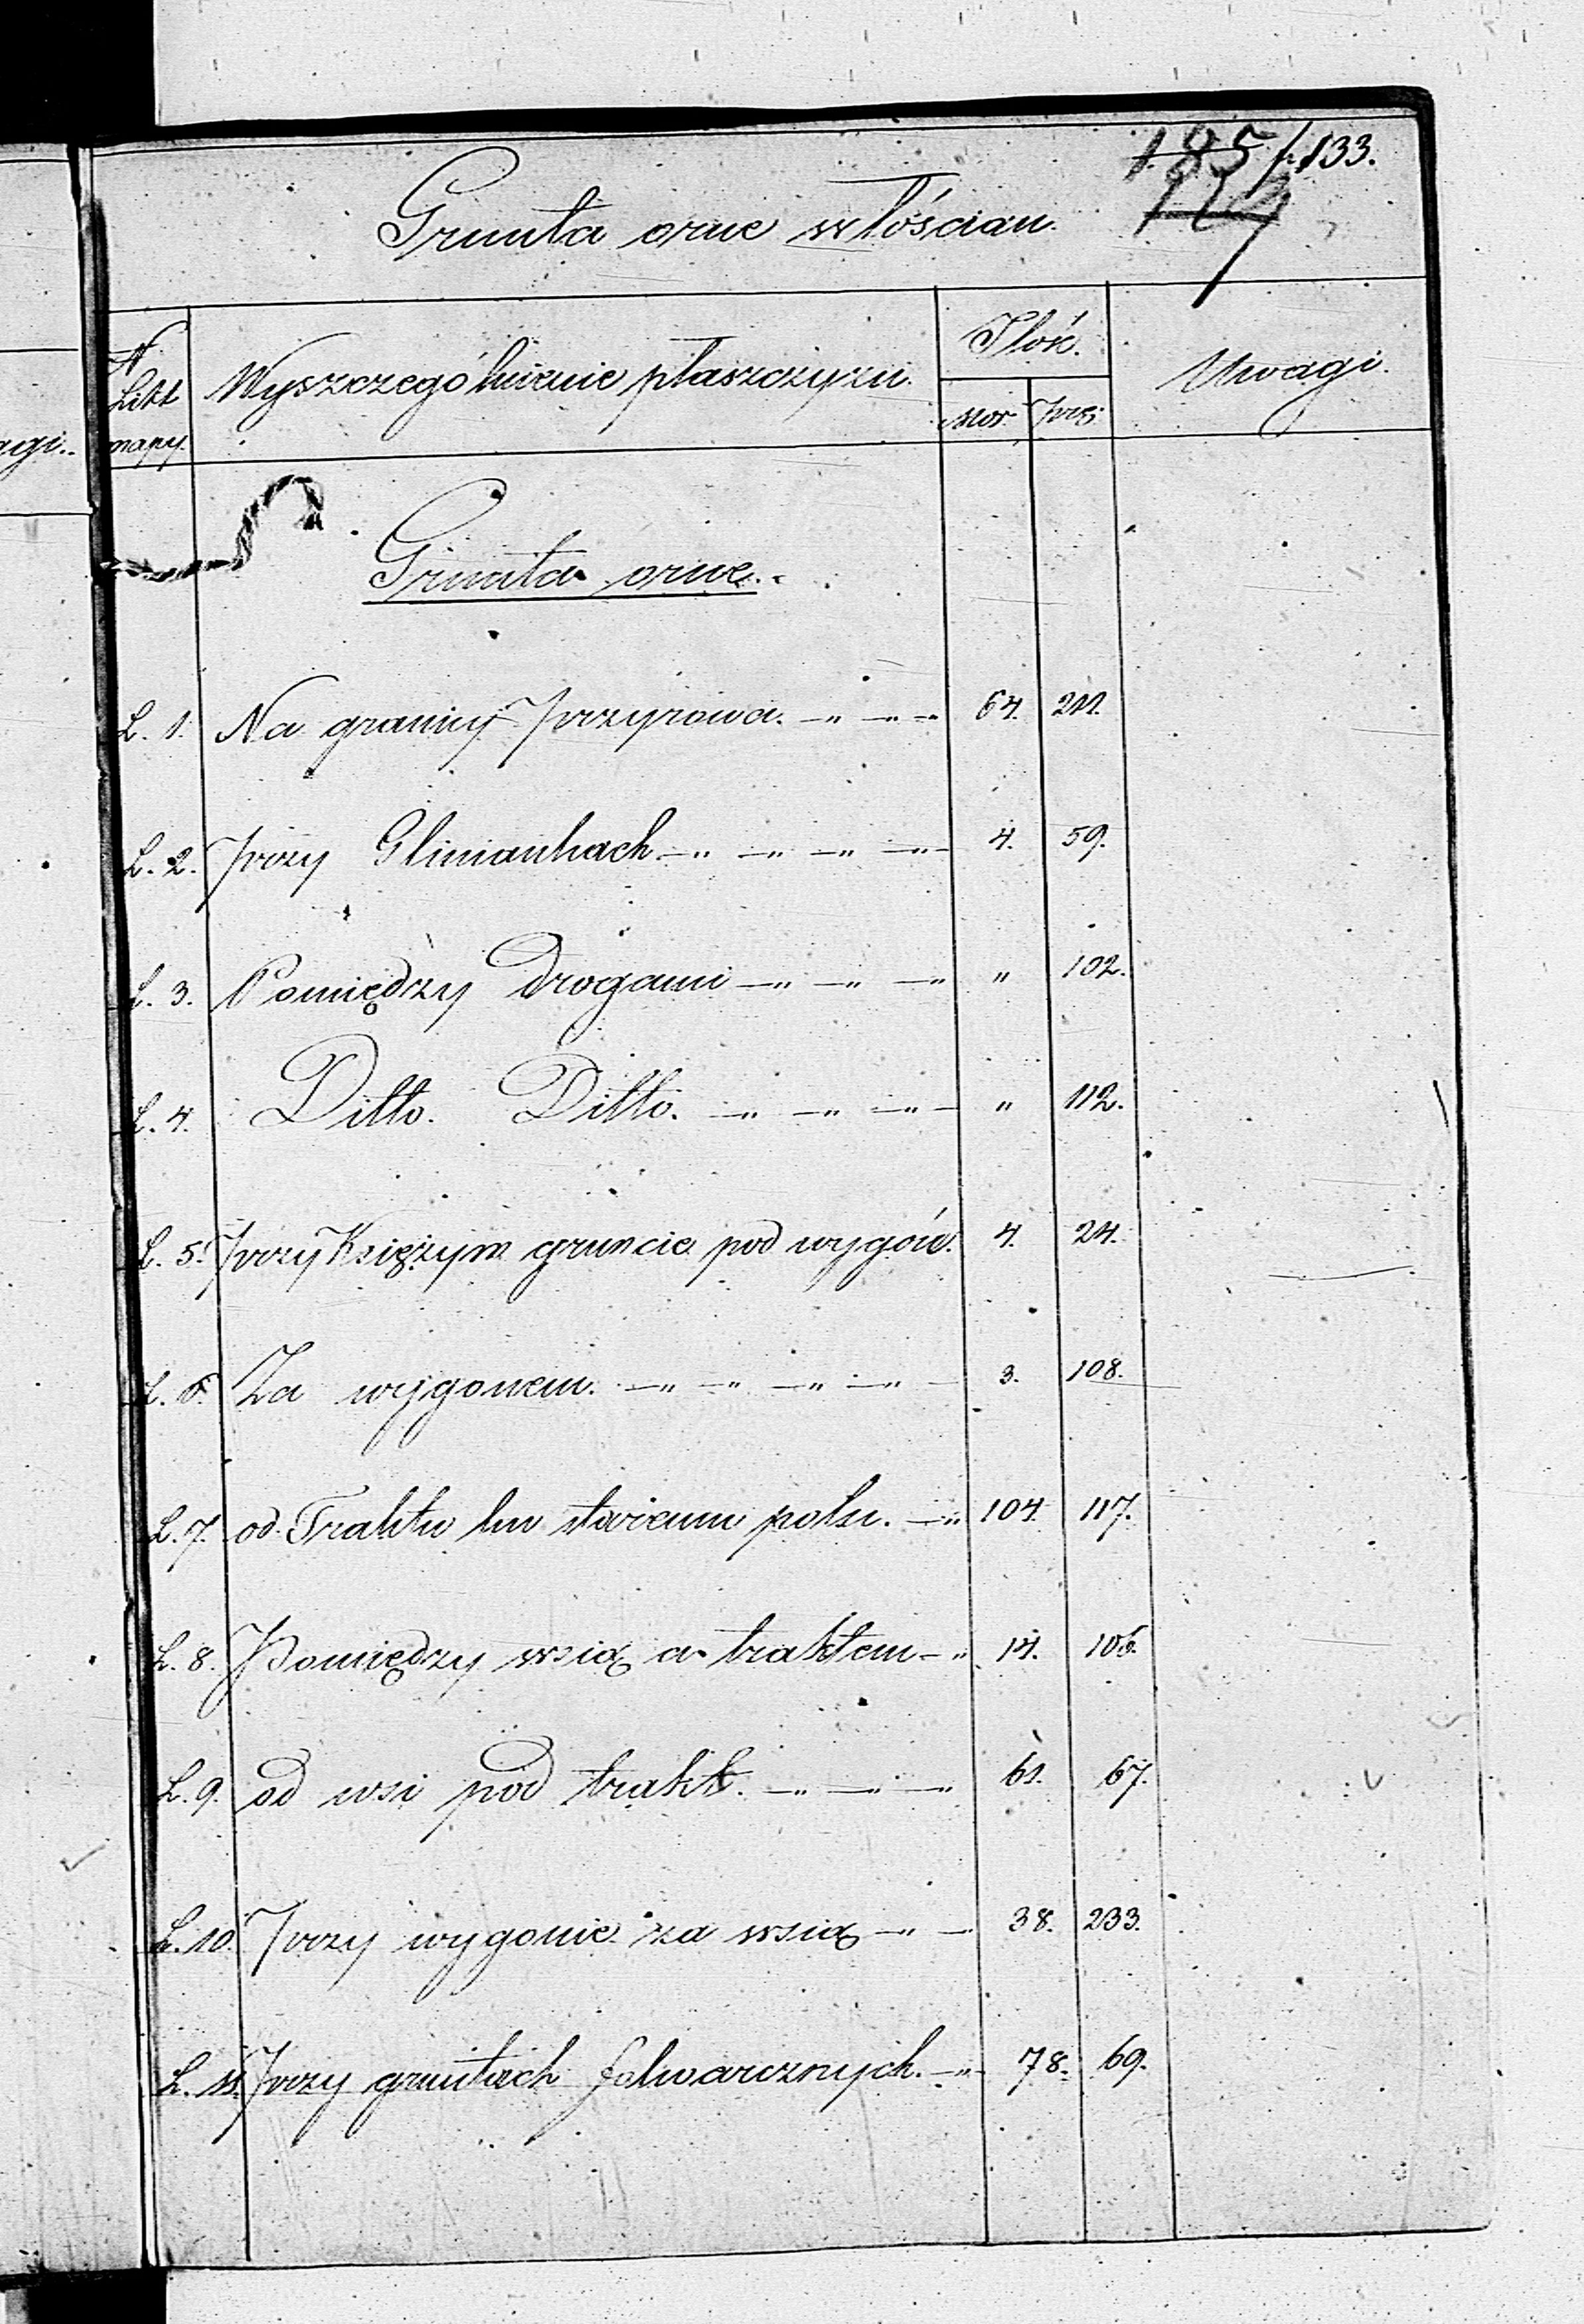 185/133.
Grunta orne włościan.
N Litt mapy. Wyszczególnienie płaszczyzn. Ilość. mor. pręt. Uwagi.
Grunta orne.
L. 1. Na granicy Przyrowa. 64. 211.
L. 2. Przy Gliniankach 4. 59.
L. 3. Pomiędzy Drogami " 102.
L. 4. Ditto. Ditto. " 112.
L. 5. Przy Księżym gruncie pod wygón. 4. 24.
L. 6. Za wygonem. 3. 108.
L. 7. od Traktu ku staremu polu. 104. 117.
L. 8. Pomiędzy wsią a traktem 14.
L. 9. od wsi pod trakt. 61. 67.
L. 10. Przy wygonie za wsią 38. 233.
L. 11. Przy gruntach folwarcznych. 78. 69.